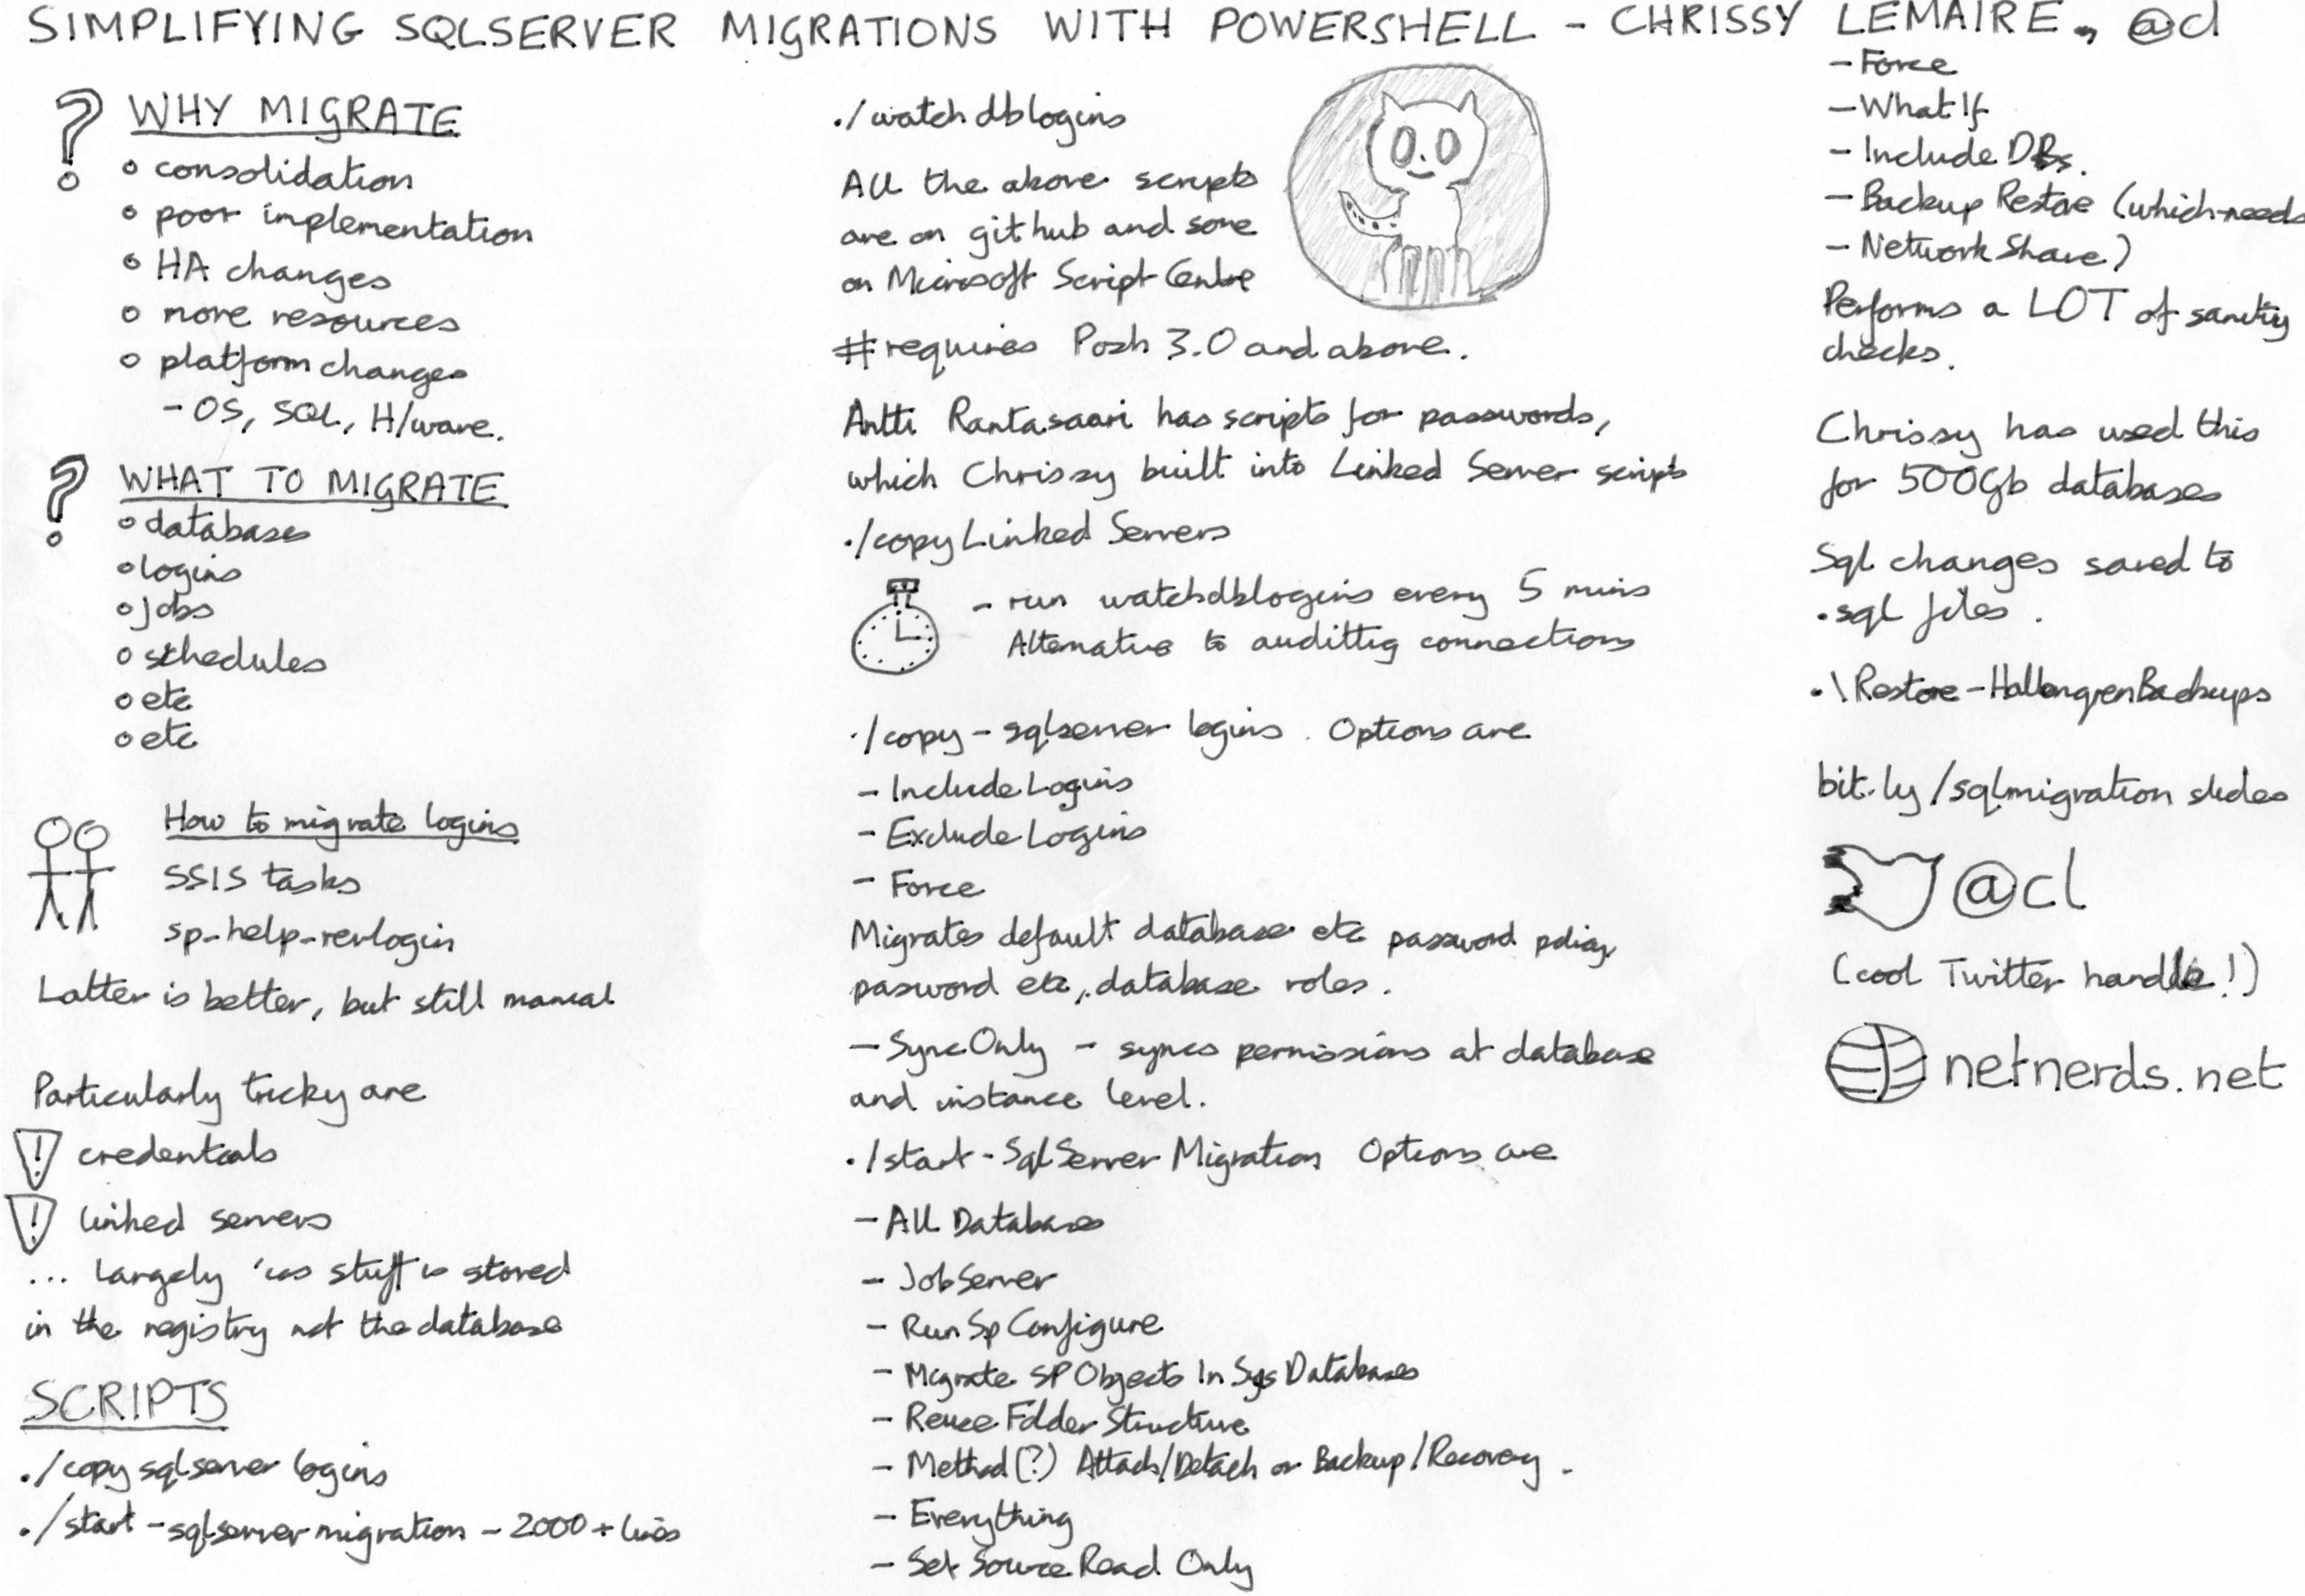 SIMPLIFYING SQLSERVER MIGRATIONS WITH POWERSHELL - CHRISSY LEMAIRE, @cl
? WHY MIGRATE
o consolidation
o poor implementation
o HA changes
o more resources
o platform changes
- OS, SQL, H/ware.
? WHAT TO MIGRATE
o databases
o logins
o jobs
o schedules
o etc
o etc
How to migrate logins
SSIS tasks
sp-help-revlogin
Latter is better, but still manual
Particularly tricky are
! credentials
! linked servers
... largely 'cos stuff is stored
in the registry not the database
SCRIPTS
./copy sqlserver logins
./start-sqlserver migration - 2000+ lines
./watch dblogins
All the above scripts
are on github and some
on Microsoft Script Centre
#requires Posh 3.0 and above.
Antti Rantasaari has scripts for passwords,
which Chrissy built into Linked Server scripts
./copy Linked Servers
- run watchdblogins every 5 mins
Alternative to audittig connections
./copy-sqlserver logins. Options are
- Include Logins
- Exclude Logins
- Force
Migrates default database etc password policy,
pasword etc, database roles.
- SyncOnly - syncs permissions at database
and instance level.
./start-SqlServer Migration Options are
- All Databases
- JobServer
- Run Sp Configure
- Migrate SP Objects In Sys Databases
- Reuse Folder Structure
- Method(?) Attach/Detach or Backup/Recovery.
- Everything
- Set Source Read Only
- Force
- What If
- Include DBs.
- Backup Restore (which needs
- Network Share)
Performs a LOT of sanity
checks.
Chrissy has used this
for 500Gb databases
Sql changes saved to
.sql files.
.\Restore-HallengrenBackups
bit.ly/sqlmigration slides
@cl
(cool Twitter handle!)
netnerds.net